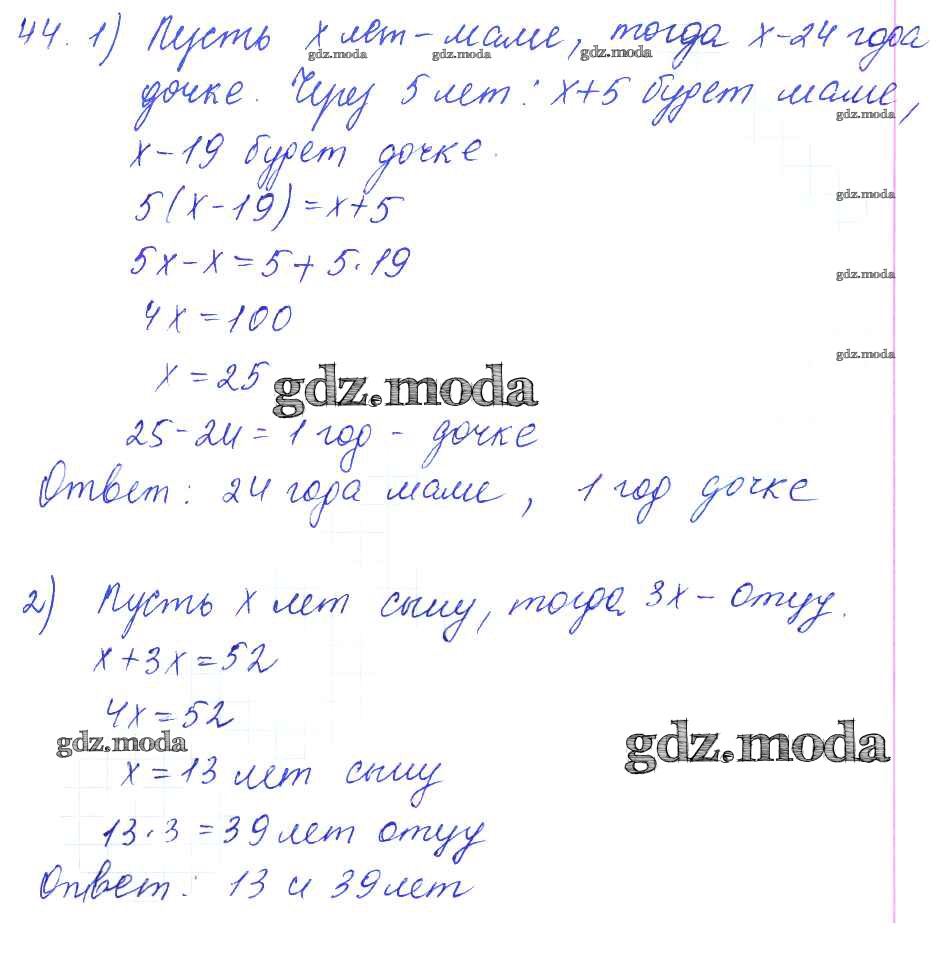 44. 1) Пусть x лет - маме, тогда x-24 года
gdz.moda gdz.moda gdz.moda
дочке. Через 5 лет: x+5 будет маме,
gdz.moda
x-19 будет дочке.
5(x-19)=x+5
gdz.moda
5x-x=5+5·19
gdz.moda
4x=100
gdz.moda
x=25
gdz.moda
25-24=1 год - дочке
Ответ: 24 года маме, 1 год дочке
2) Пусть x лет сыну, тогда 3x - отцу.
x+3x=52
4x=52
gdz.moda gdz.moda
x=13 лет сыну
13·3=39 лет отцу
Ответ: 13 и 39 лет